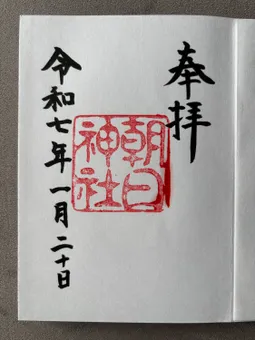 奉拝
朝日
神社
令和七年一月二十日